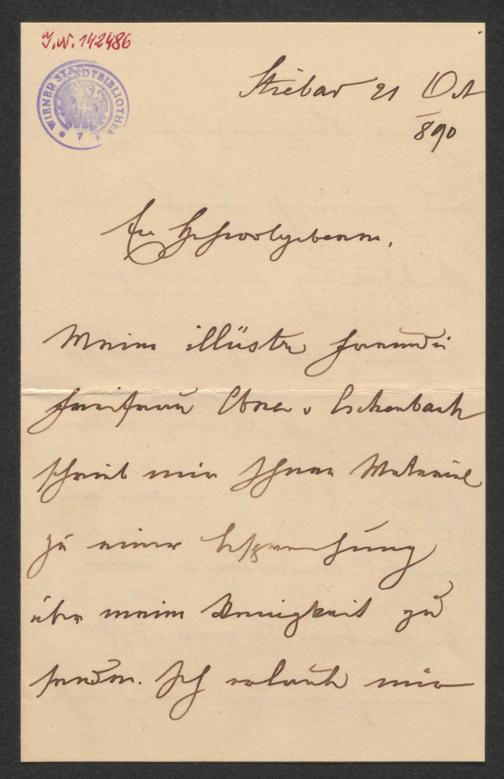 J.N. 142486
WIENER STADTBIBLIOTHEK
* 7 *
Střebař 21 Oct
890
Eu Hochwolgeboren,
Meine illüstre Freundin
Freifrau Ebner v Eschenbach
schrieb mir Ihnen Material
zu einer Besprechung
über meine Wenigkeit zu
senden. Ich erlaube mir